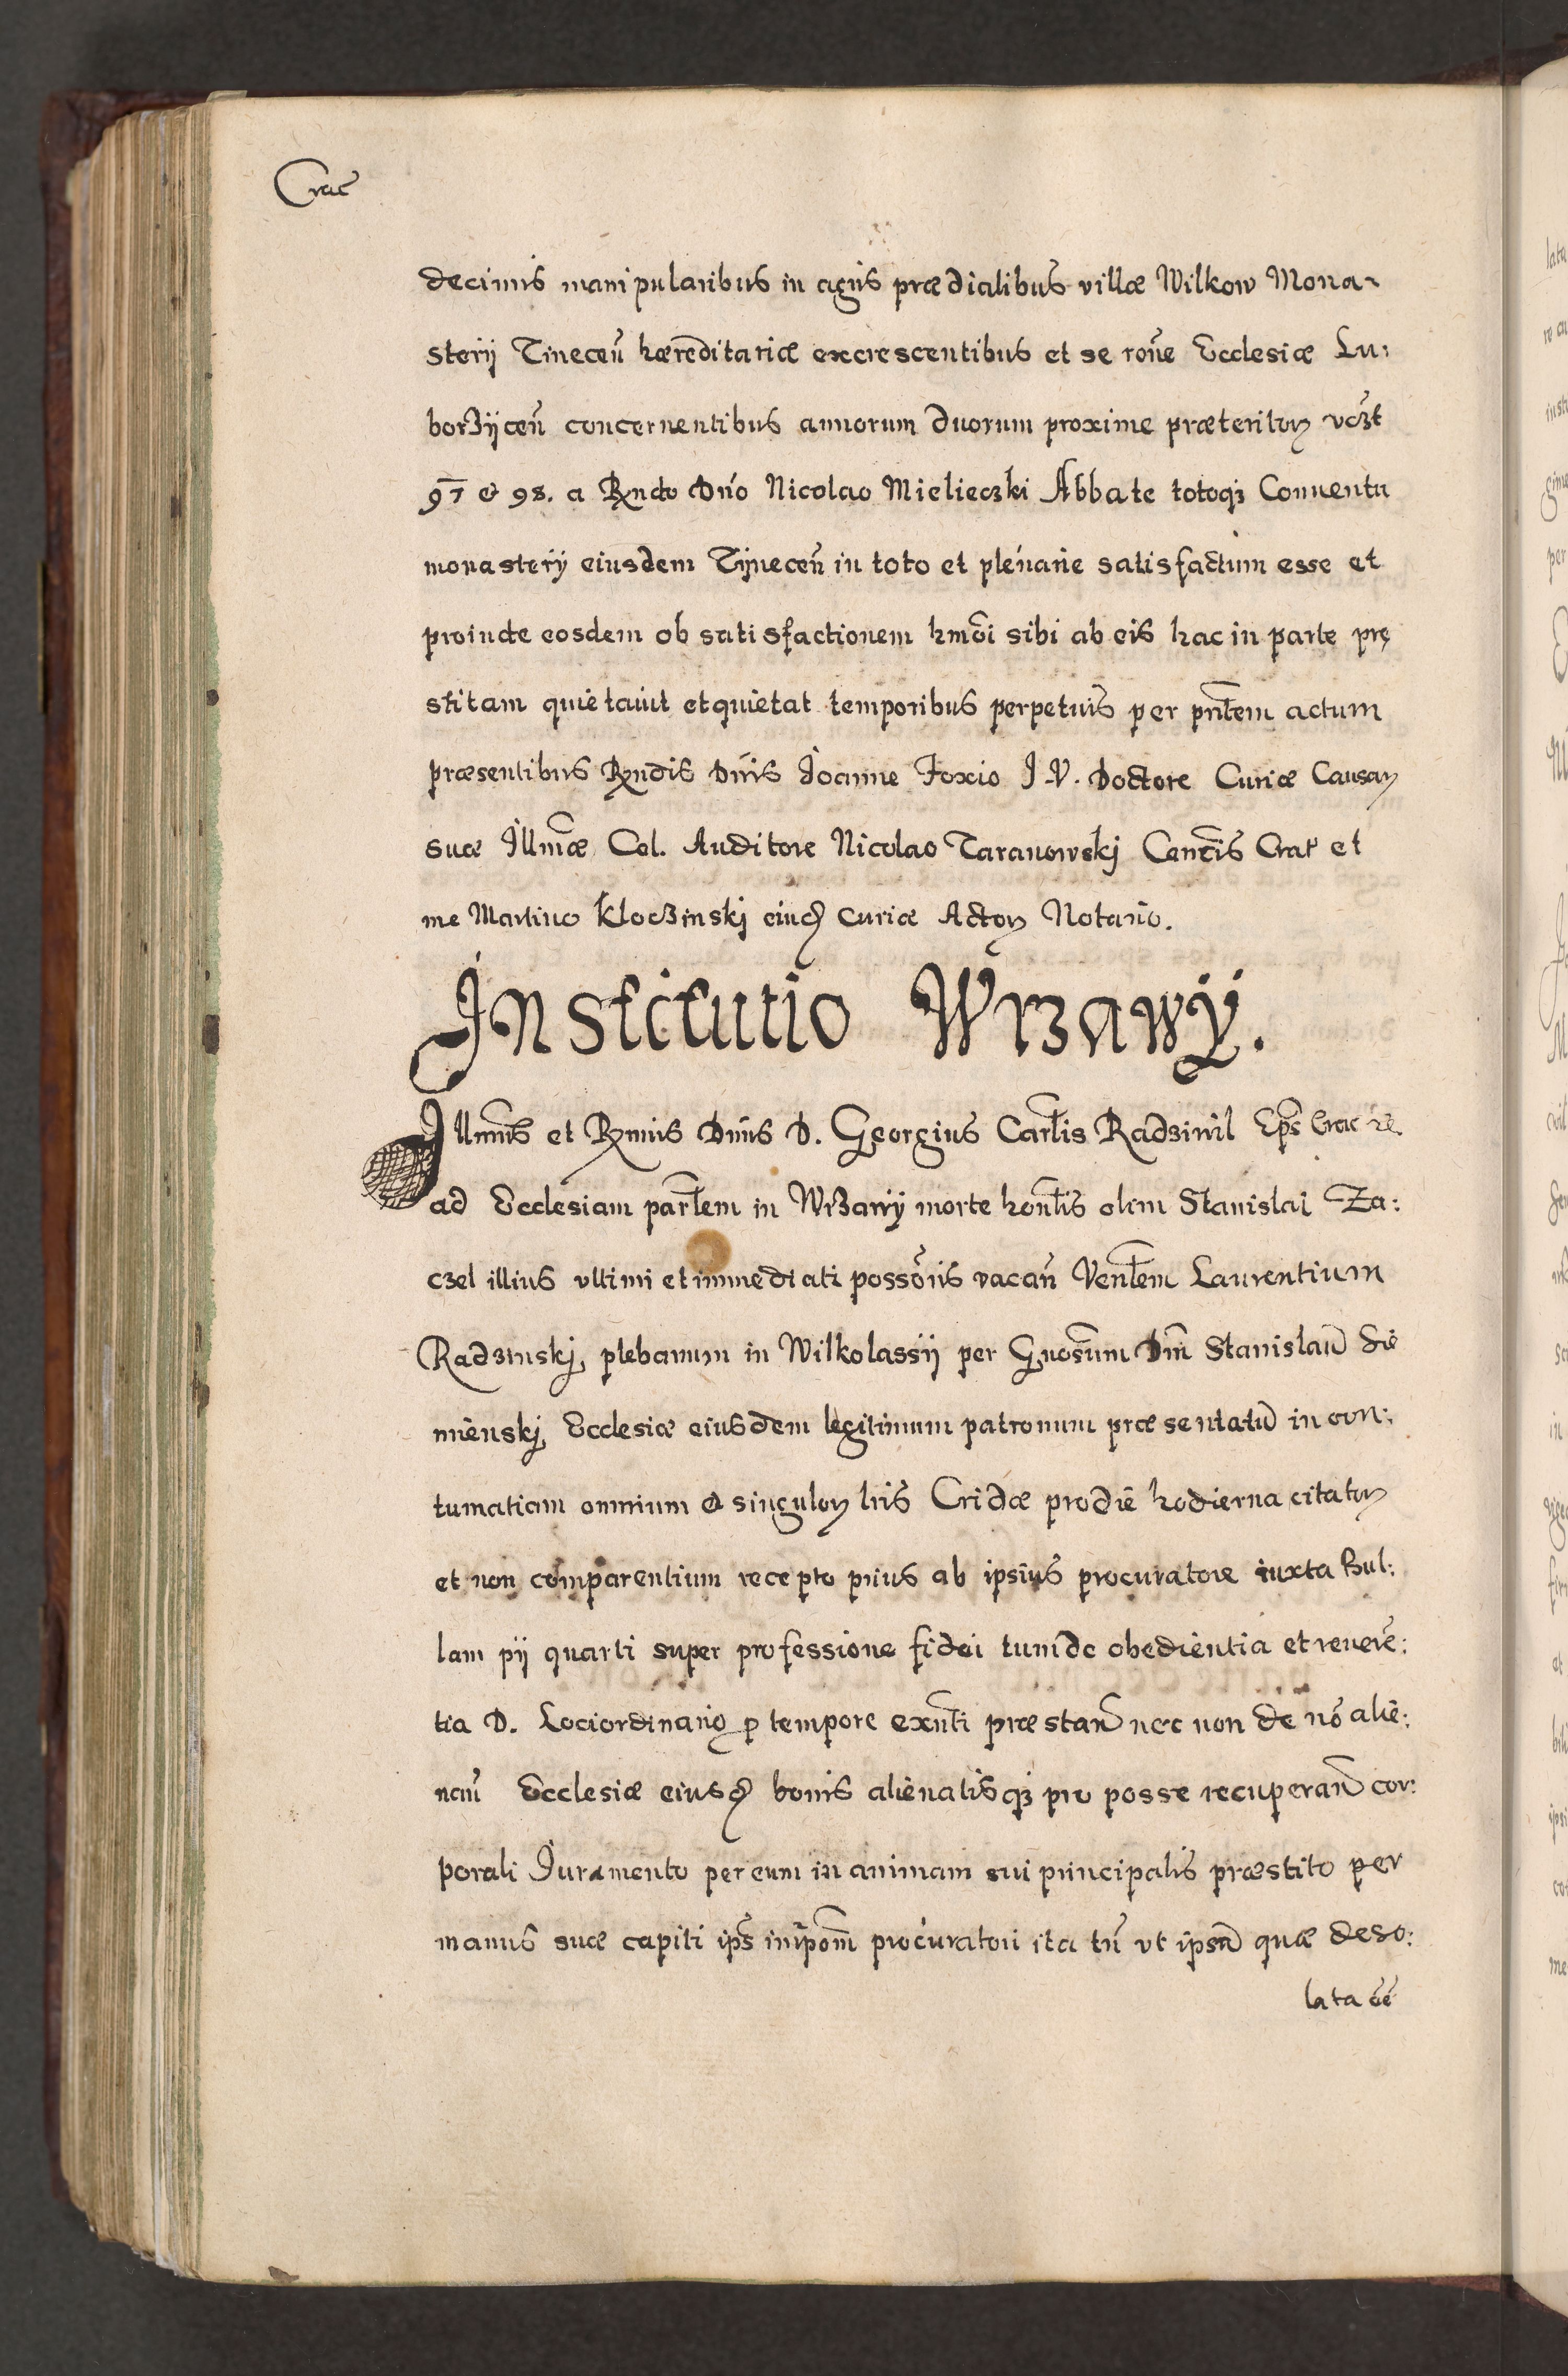 Crac̄
decimis manipularibus in agris prædialibus villæ Wilkow Mona-
sterij Tineceñ hæreditariæ excrescentibus et se roñe Ecclesiæ Lu:
borzijceñ concernentibus annorum duorum proxime præteritoꝝ vcꝫt
97 & 98. a Rndo Dño Nicolao Mielieczki Abbate totoqꝫ Conuentu
monastery eiusdem Tijneceñ in toto et plenarie satisfactum esse et
proinde eosdem ob satisfactionem hmōi sibi ab eis hac in parte prę
stitam quietauit et quietat temporibus perpetuis per pñtem actum
præsentibus Rndis Dñis Joanne Foxio J.V. Doctore Curiæ Causaꝝ
suæ Jllmæ Cel. Auditore Nicolao Taranowskj Cancris Crac̄ et
me Martino Kloczinskj eiusd̄ Curiæ Actoꝝ Notario.
Institutio Wrzawÿ.
Jllmūs et Rmus Dnūs D. Georgius Carlīs Radziwil Epūs Crac̄ &c.
ad Ecclesiam parlem in Wrzawy morte honlis olim Stanislai Za:
czel illius vltimi et immediati possōris vacañ Venlem Laurentium
Radzinskj, plebanum in Wilkolassÿ per Gnosum Dm̄ Stanislaū Sie
mienskj, Ecclesiæ eiusdem legitimum patronum præsentatū in con:
tumatiam omnium & singuloꝝ lris Cridæ pro die hodierna citatoꝝ
et non comparentium recepto prius ab ipsius procuratore iuxta Bul:
lam pij quarti super professione fidei tum de obedientia et reuerē:
tia D. Loci ordinario ꝑ tempore exnti præstañ nec non de nō alie:
nañ Ecclesiæ eiusd̄ bonis alienatisqꝫ pro posse recuperañ cor:
porali Juramento per eum in animam sui principalis præstito per
manus suæ capiti ips̄ impom̄ procuratori ita tñ vt ipsā quæ deso:
lata ēē